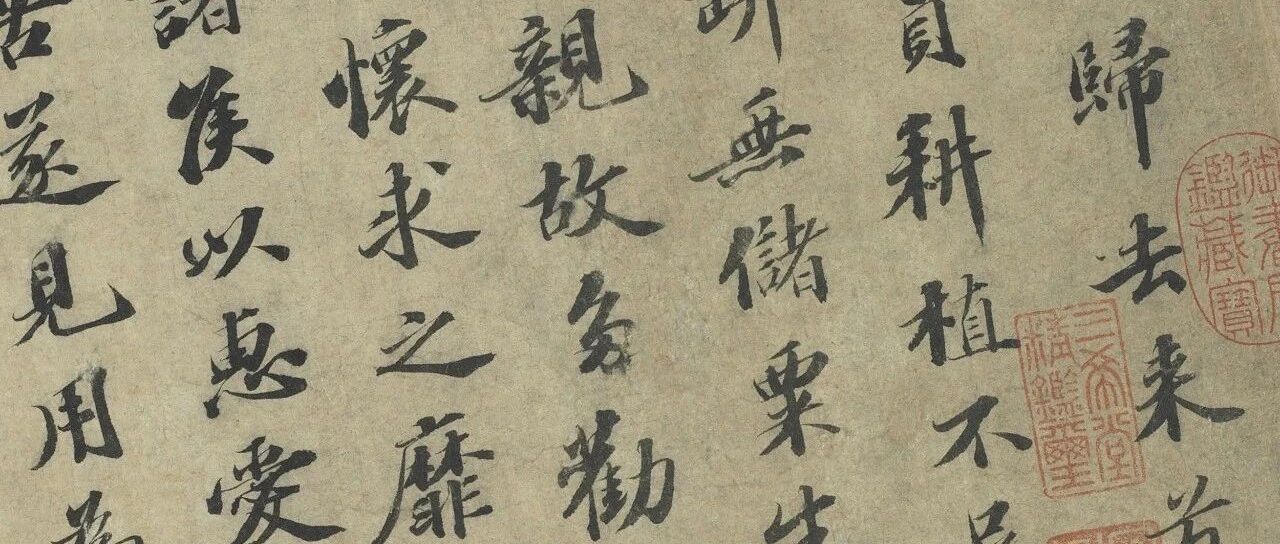 歸去来
耕植不
無儲粟生
親故多勸
懷求之靡
諸侯以惠愛
苦遂見用為
御書房鑑藏寶
三希堂精鑑璽